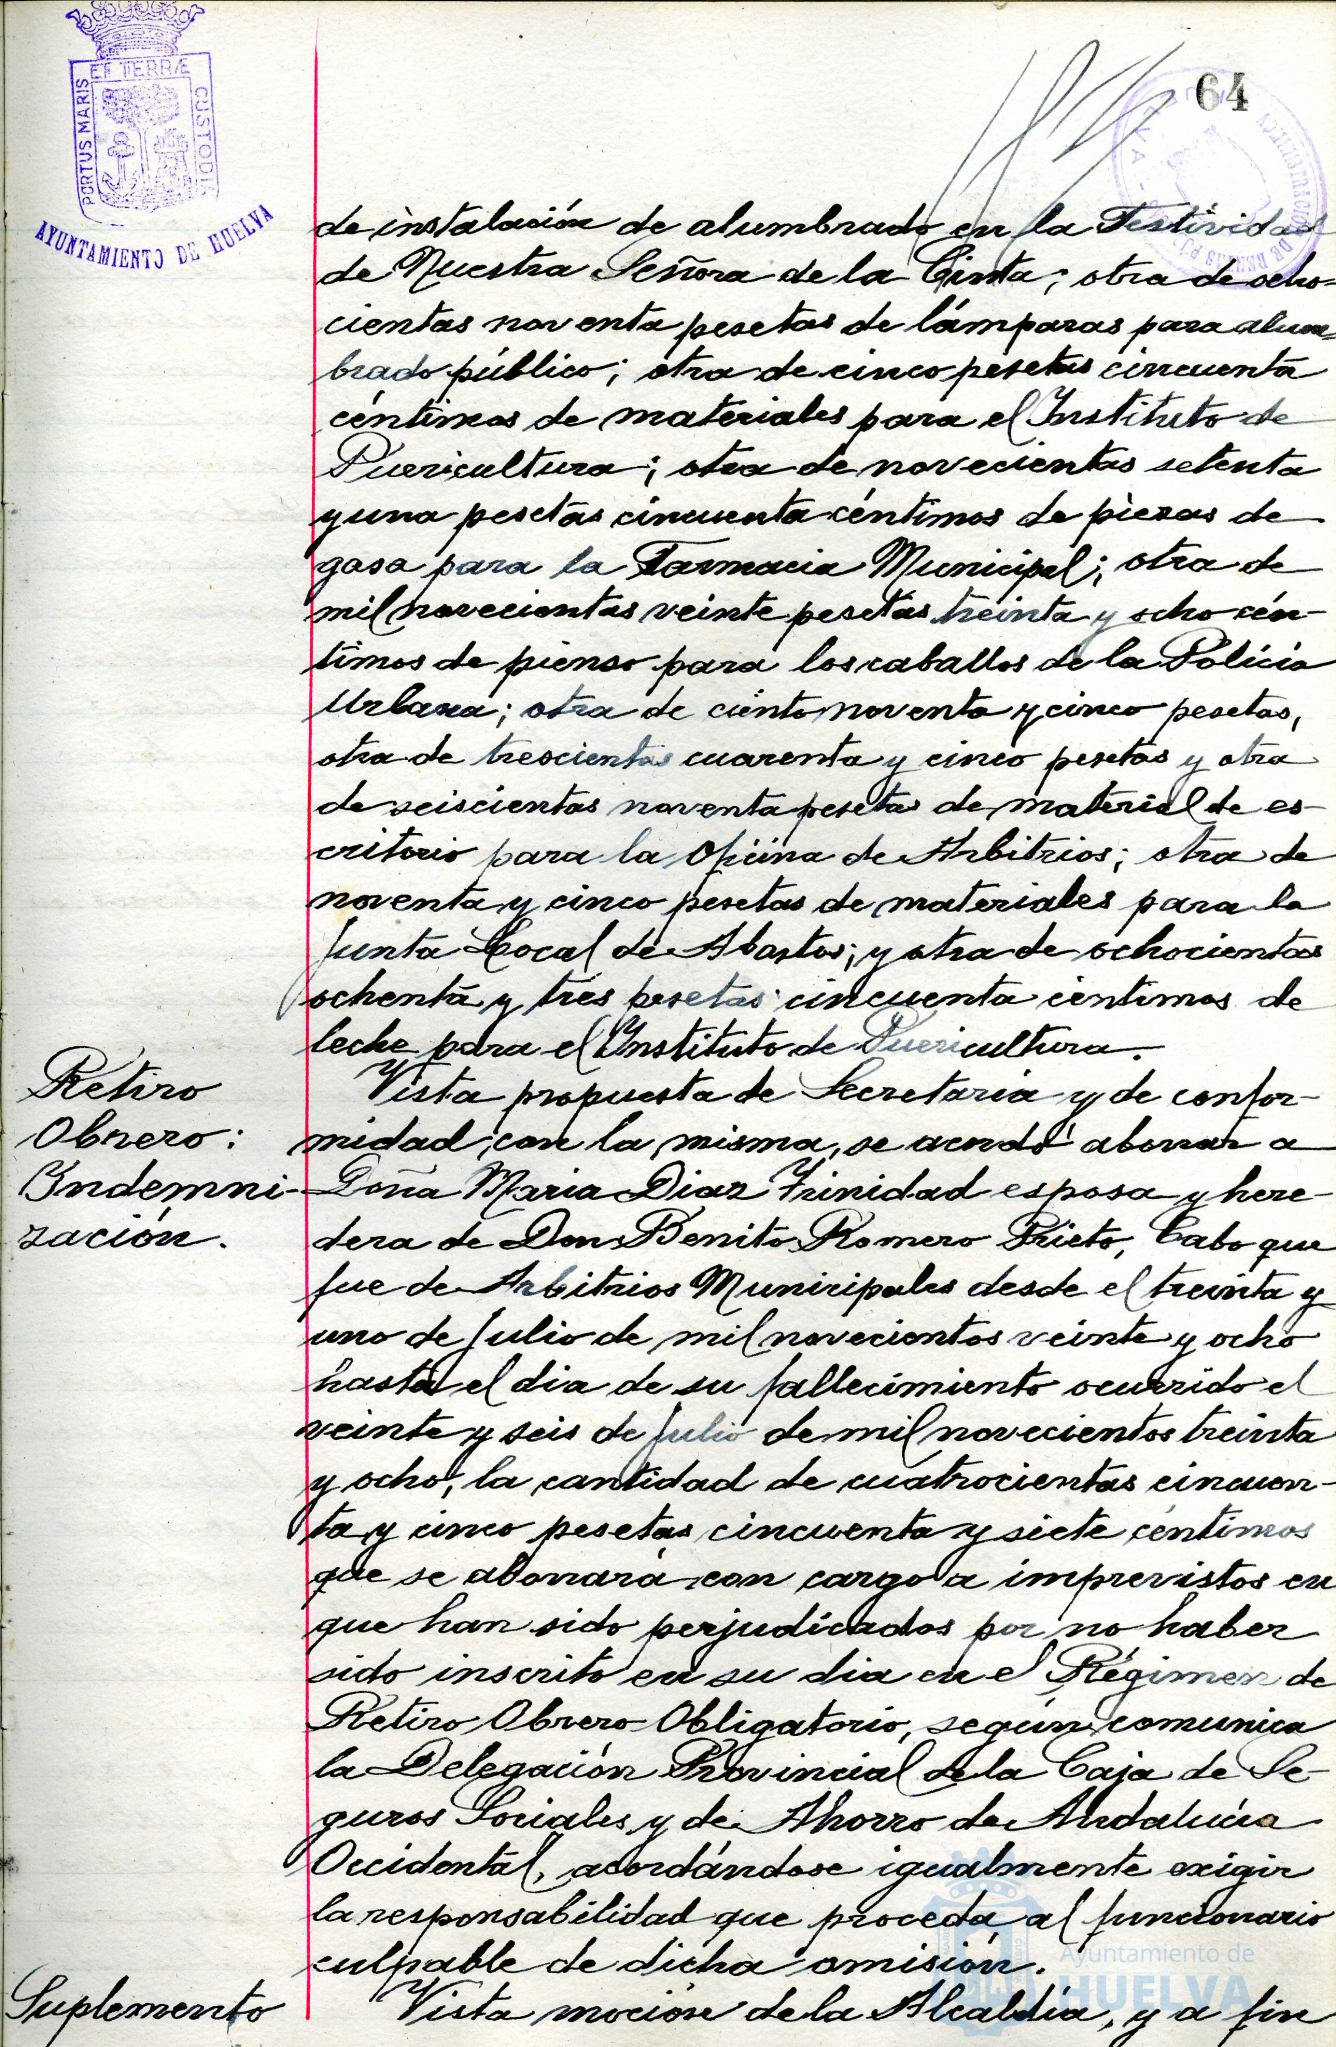 64
PORTUS MARIS ET TERRÆ CUSTODIA
AYUNTAMIENTO DE HUELVA
de instalación de alumbrado en la Festividad
de Nuestra Señora de la Cinta; otra de ocho=
cientas noventa pesetas de lámparas para alum=
brado público; otra de cinco pesetas cincuenta
céntimos de materiales para el Instituto de
Puericultura; otra de novecientas setenta
y una pesetas cincuenta céntimos de piezas de
gasa para la Farmacia Municipal; otra de
mil novecientas veinte pesetas treinta y ocho cén-
timos de pienso para los caballos de la Policía
Urbana; otra de ciento noventa y cinco pesetas,
otra de trescientas cuarenta y cinco pesetas y otra
de seiscientas noventa pesetas de material de es-
critorio para la Oficina de Arbitrios; otra de
noventa y cinco pesetas de materiales para la
Junta Local de Abastos; y otra de ochocientas
ochenta y tres pesetas cincuenta centimos de
leche para el Instituto de Puericultura.
Retiro
Obrero:
Indemni-
zación.
Vista propuesta de Secretaria y de confor-
midad con la misma, se acordó abonar a
Doña Maria Diaz Trinidad esposa y here-
dera de Don Benito Romero Prieto, Cabo que
fue de Arbitrios Municipales desde el treinta y
uno de Julio de mil novecientos veinte y ocho
hasta el dia de su fallecimiento ocurrido el
veinte y seis de Julio de mil novecientos treinta
y ocho, la cantidad de cuatrocientas cincuen-
ta y cinco pesetas cincuenta y siete céntimos
que se abonará con cargo a imprevistos en
que han sido perjudicados por no haber
sido inscrito en su dia en el Régimen de
Retiro Obrero Obligatorio, según comunica
la Delegación Provincial de la Caja de Se-
guros Sociales y de Ahorro de Andalucía
Occidental, acordándose igualmente exigir
la responsabilidad que proceda al funcionario
culpable de dicha omisión.
Suplemento
Vista moción de la Alcaldía, y a fin
Ayuntamiento de
HUELVA